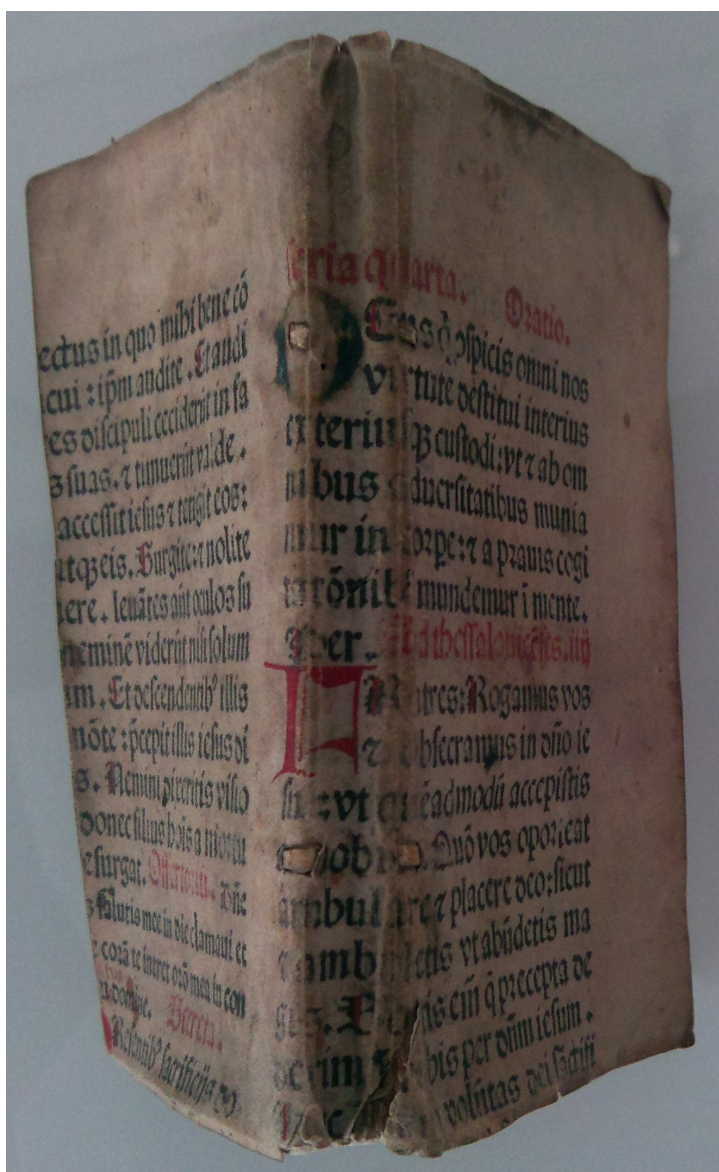 ectus in quo mihi bene cō
cui : ipm audite . Et audi
es discipuli ceciderūt in fa
s suas. ⁊ timuerūt valde .
accessit iesus ⁊ tetigit eos:
itqꝫ eis. Surgite: ⁊ nolite
ere . leuātes aūt oculos su
neminē viderūt nisi solum
m . Et descendentibꝰ illis
mōte : p̄cepit illis iesus di
s . Nemini dixeritis visio
donec filius hoīs a mortu
e surgat. Offertoriū. Dn̄e
s salutis mee in die clamaui et
corā te intret orō mea in con
domine. Secreta.
sacrificijs
feria quarta. Oratio.
DEus q̄ ꝯspicis omni nos
virtute destitui interius
exteriusqꝫ custodi: vt ⁊ ab om
nibus aduersitatibus munia
mur in corpe: ⁊ a prauis cogi
tatōnibꝰ mundemur ī mente.
Per. Ad thessalonicēses. iiij
FRatres: Rogamus vos
⁊ obsecramus in dn̄o ie
su : vt quēadmodū accepistis
a nobis. Quō vos oporteat
ambulare ⁊ placere deo: sicut
⁊ ambuletis vt abūdetis ma
gis. Scitis eīn q̄ precepta de
derim vobis per dn̄m iesum .
Hec voluntas dei sāctifi